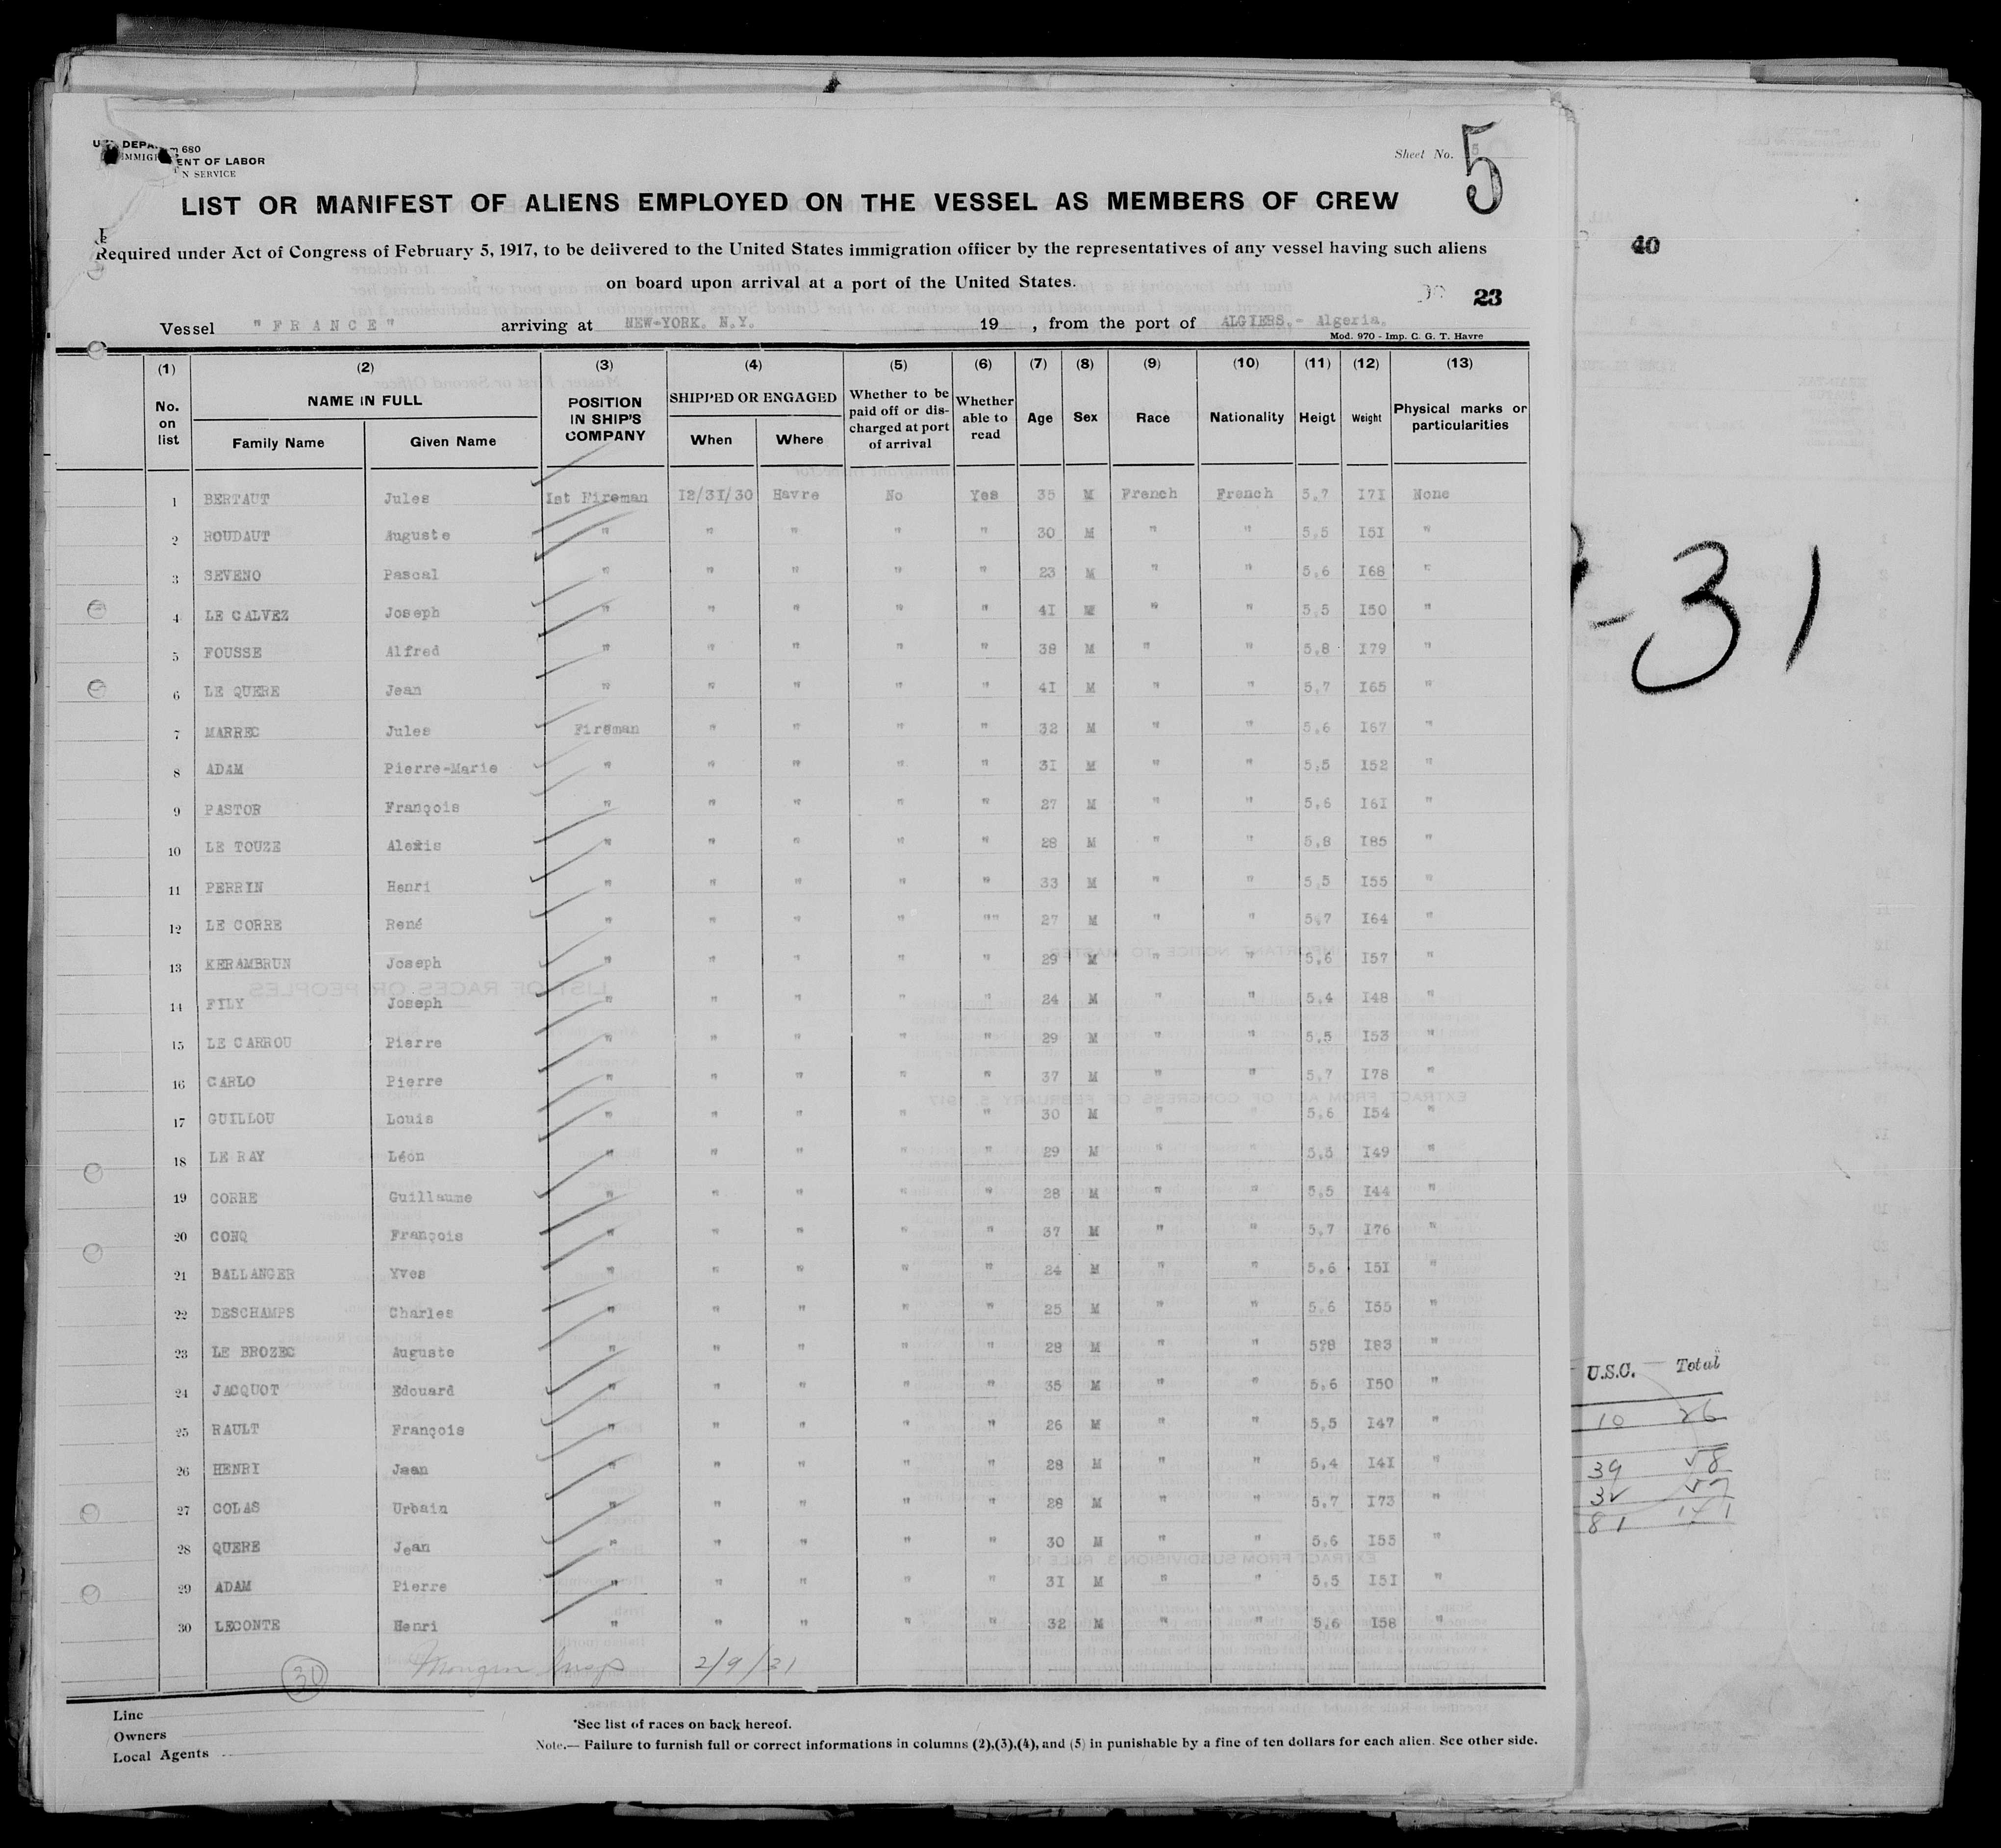 680
U. DEPA ENT OF LABOR
IMMIGR N SERVICE
Sheet No. 5
5
LIST OR MANIFEST OF ALIENS EMPLOYED ON THE VESSEL AS MEMBERS OF CREW
Required under Act of Congress of February 5, 1917, to be delivered to the United States immigration officer by the representatives of any vessel having such aliens
on board upon arrival at a port of the United States.
23
Vessel "FRANCE" arriving at NEW-YORK. N.Y. 19 , from the port of ALGIERS,- Algeria.
Mod. 970 - Imp. C. G. T. Havre
(1) (2) (3) (4) (5) (6) (7) (8) (9) (10) (11) (12) (13)
No. on list NAME IN FULL Family Name Given Name POSITION IN SHIP'S COMPANY SHIPPED OR ENGAGED When Where Whether to be paid off or discharged at port of arrival Whether able to read Age Sex Race Nationality Heigt Weight Physical marks or particularities
1 BERTAUT Jules Ist Fireman I2/3I/30 Havre No Yes 35 M French French 5,7 I7I None
2 ROUDAUT Auguste " " " " " 30 M " " 5,5 I5I "
3 SEVENO Pascal " " " " " 23 M " " 5,6 I68 "
4 LE CALVEZ Joseph " " " " " 4I M " " 5,5 I50 "
5 FOUSSE Alfred " " " " " 38 M " " 5,8 I79 "
6 LE QUERE Jean " " " " " 4I M " " 5,7 I65 "
7 MARREC Jules Fireman " " " " 32 M " " 5,6 I67 "
8 ADAM Pierre-Marie " " " " " 3I M " " 5,5 I52 "
9 PASTOR François " " " " " 27 M " " 5,6 I6I "
10 LE TOUZE Alexis " " " " " 28 M " " 5,8 I85 "
11 PERRIN Henri " " " " " 33 M " " 5,5 I55 "
12 LE CORRE René " " " " "" 27 M " " 5,7 I64 "
13 KERAMBRUN Joseph " " " " " 29 M " " 5,6 I57 "
14 FILY Joseph " " " " " 24 M " " 5,4 I48 "
15 LE CARROU Pierre " " " " " 29 M " " 5,5 I53 "
16 CARLO Pierre " " " " " 37 M " " 5,7 I78 "
17 GUILLOU Louis " " " " " 30 M " " 5,6 I54 "
18 LE RAY Léon " " " " " 29 M " " 5,5 I49 "
19 CORRE Guillaume " " " " " 28 M " " 5,5 I44 "
20 CONQ François " " " " " 37 M " " 5,7 I76 "
21 BALLANGER Yves " " " " " 24 M " " 5,6 I5I "
22 DESCHAMPS Charles " " " " " 25 M " " 5,6 I55 "
23 LE BROZEC Auguste " " " " " 28 M " " 5?8 I83 "
24 JACQUOT Edouard " " " " " 35 M " " 5,6 I50 "
25 RAULT François " " " " " 26 M " " 5,5 I47 "
26 HENRI Jean " " " " " 28 M " " 5,4 I4I "
27 COLAS Urbain " " " " " 28 M " " 5,7 I73 "
28 QUERE Jean " " " " " 30 M " " 5,6 I55 "
29 ADAM Pierre " " " " " 3I M " " 5,5 I5I "
30 LECONTE Henri " " " " " 32 M " " 5,6 I58 "
30 2/9/31
Line
Owners
Local Agents
*See list of races on back hereof.
Note.— Failure to furnish full or correct informations in columns (2),(3),(4), and (5) in punishable by a fine of ten dollars for each alien. See other side.
40
-31
U.S.C. Total
10 26
39 58
32 57
81 141